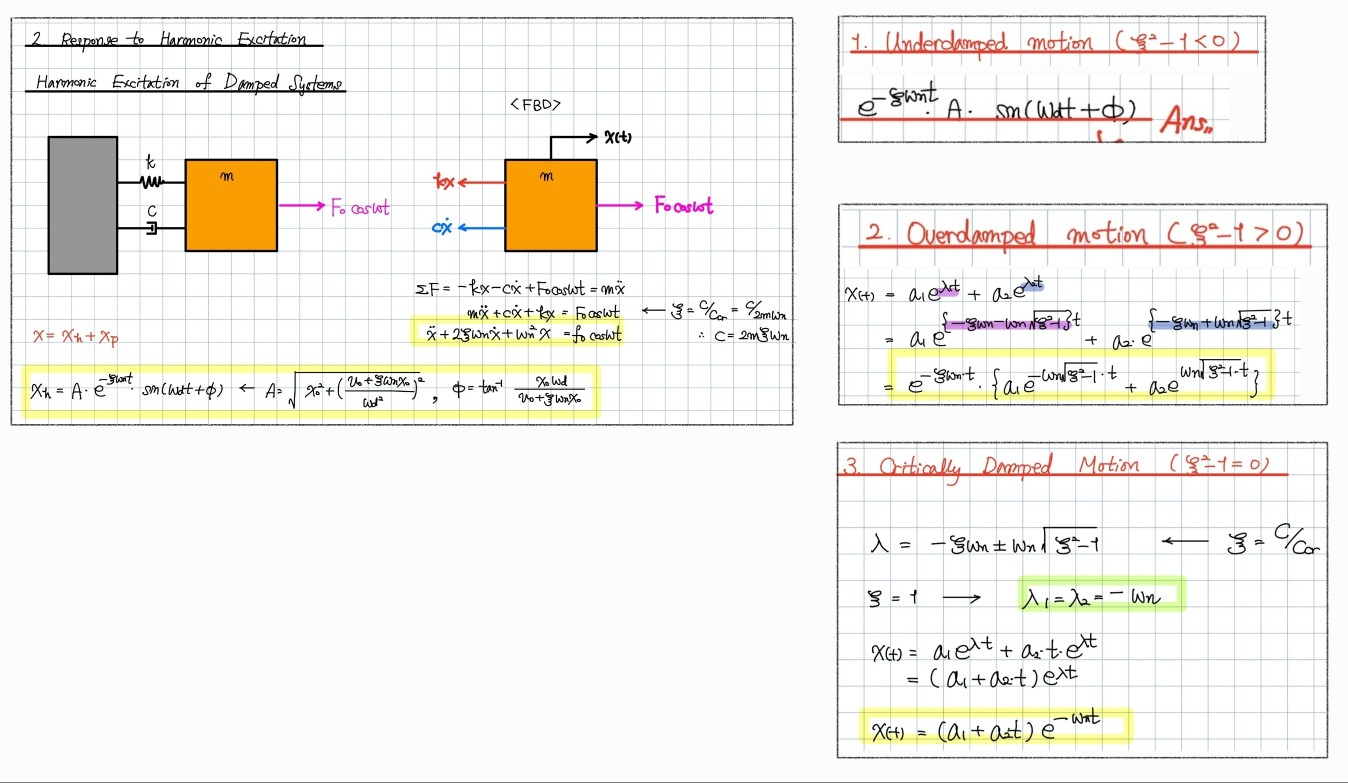 2. Response to Harmonic Excitation
Harmonic Excitation of Damped Systems
<FBD>
k
c
m
F₀ cosωt
x(t)
kx
cẋ
m
F₀ cosωt
ΣF = -kx-cẋ + F₀cosωt = mẍ
mẍ + cẋ + kx = F₀cosωt ← ξ = c/ccr = c/2mωn
ẍ + 2ξωnẋ + ωn²x = f₀ cosωt ∴ c = 2mξωn
x = xh + xp
xh = A·e^-ξωnt · sin(ωdt + φ) ← A = √(x₀² + (v₀+ξωnx₀)²/ωd²) , φ = tan⁻¹ x₀ωd/(v₀+ξωnx₀)
1. Underdamped motion (ξ²-1<0)
e^-ξωnt · A · sin(ωdt + φ) Ans,,
2. Overdamped motion (ξ²-1>0)
x(t) = a₁e^λ₁t + a₂e^λ₂t
= a₁e^{-ξωn-ωn√(ξ²-1)}t + a₂·e^{-ξωn+ωn√(ξ²-1)}t
= e^-ξωn·t · {a₁e^-ωn√(ξ²-1)·t + a₂e^ωn√(ξ²-1)·t}
3. Critically Damped Motion (ξ²-1=0)
λ = -ξωn ± ωn√(ξ²-1) ← ξ = c/ccr
ξ = 1 → λ₁ = λ₂ = -ωn
x(t) = a₁e^λt + a₂·t·e^λt
= (a₁ + a₂·t) e^λt
x(t) = (a₁ + a₂t) e^-ωnt